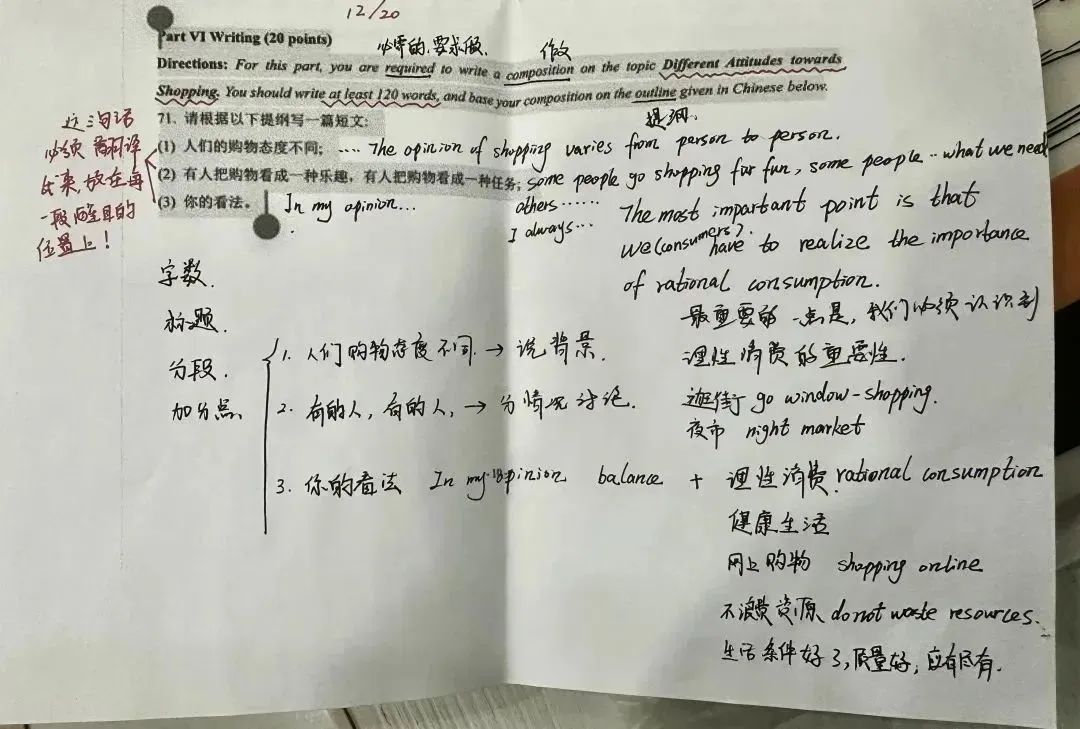 12/20
Part VI Writing (20 points)
必需的,要求做,
作文
Directions: For this part, you are required to write a composition on the topic Different Attitudes towards
Shopping. You should write at least 120 words, and base your composition on the outline given in Chinese below.
提纲
71. 请根据以下提纲写一篇短文:
(1) 人们的购物态度不同; .... The opinion of shopping varies from person to person.
(2) 有人把购物看成一种乐趣,有人把购物看成一种任务; some people go shopping for fun, some people .. what we need
others ......
(3) 你的看法。 In my opinion...
I always...
这三句话
必须翻译
出来,放在每
一段醒目的
位置上!
The most important point is that
we (consumers) have to realize the importance
of rational consumption.
最重要的一点是,我们必须认识到
理性消费的重要性.
逛街 go window-shopping.
夜市 night market
字数.
标题.
分段.
加分点.
1. 人们购物态度不同. → 说背景.
2. 有的人, 有的人, → 分情况讨论.
3. 你的看法 In my opinion balance + 理性消费. rational consumption
健康生活
网上购物 shopping online
不浪费资源 do not waste resources.
生活条件好了,质量好,应有尽有.